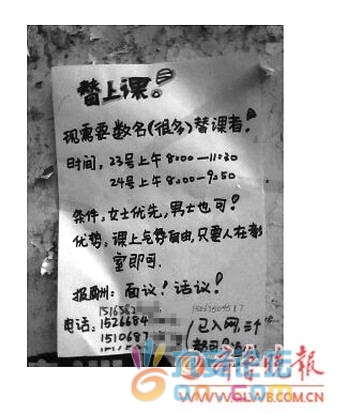 替上课!
现需要数名(很多)替课者!
时间:23号上午8:00—11:30
24号上午8:00—9:50
条件:女士优先,男士也可!
优势:课上气氛自由,只要人在教
室即可.
报酬:面议!话议!
1516582
电话:1526684
1510687
(已入网,三个
都可
齐鲁晚报
WWW.QLWB.COM.CN